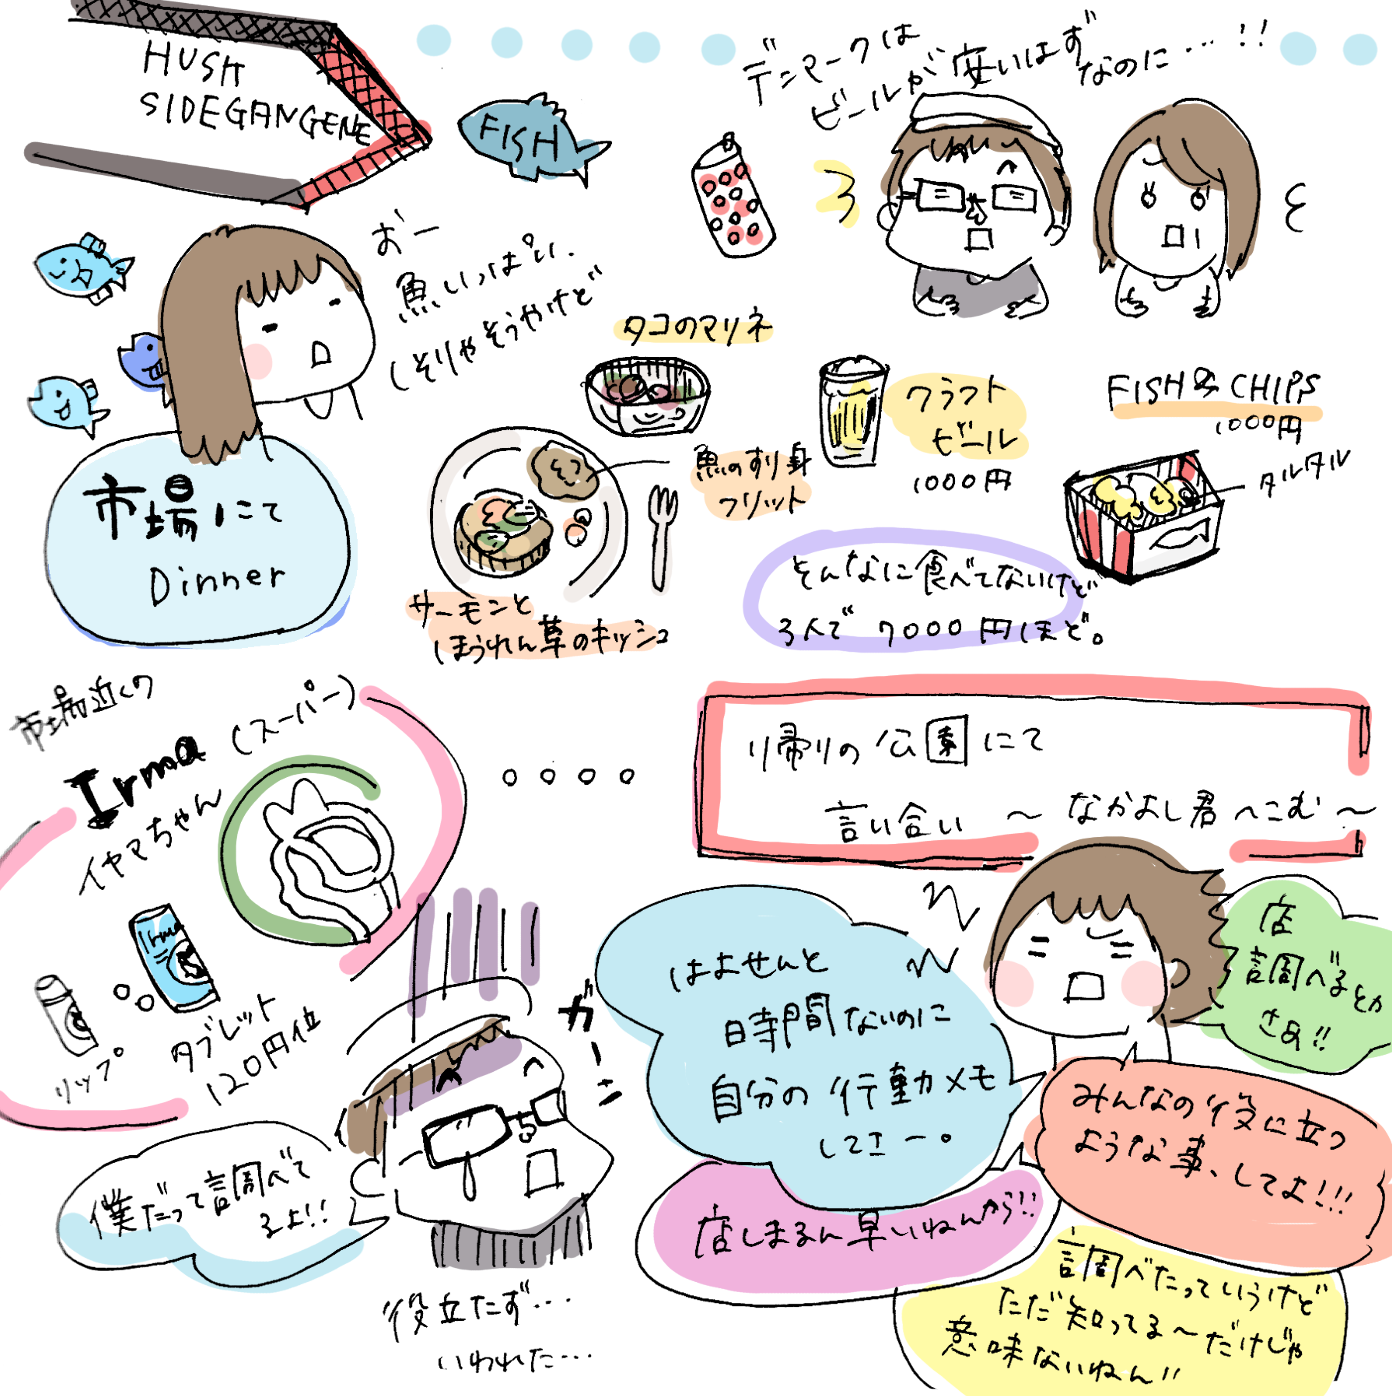 HUSH
SIDEGANGENE
FISH
デンマークは
ビールが安いはず
なのに…!!
おー
魚いっぱい.
しそりゃそうやけど
タコのマリネ
クラフト
ビール
1000円
FISH & CHIPS
1000円
タルタル
魚のすり身
フリット
市場にて
Dinner
サーモンと
ほうれん草のキッシュ
そんなに食べてないけど
3人で7000円ほど。
市場近くの
Irma(スーパー)
イヤマちゃん
Irma
タブレット
120円位
リップ
り帰りの公園にて
言い合い 〜なかよし君へこむ〜
はよせんと
時間ないのに
自分の行動メモ
してさー。
店
調べるとか
さぁ!!
みんなの役に立つ
ような事、してよ!!!
店しまるん早いねんから!!
調べたっていうけど
ただ知ってる〜だけじゃ
意味ないねん!!
ガーン
僕だって調べて
るよ!!
役立たず…
いわれた…